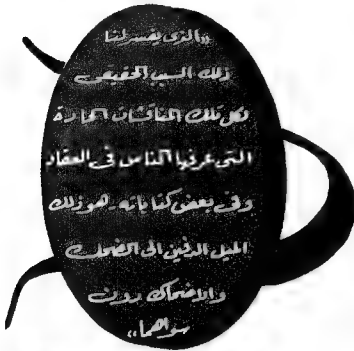 «الذى يفسر لنا
ذلك السبب الحقيقى
لكل تلك المناقشات الحادة
التى عرفها الناس فى العقاد
وفى بعض كتاباته. هو ذلك
الميل الدفين الى الضحك
والإضحاك دون
سواهما»